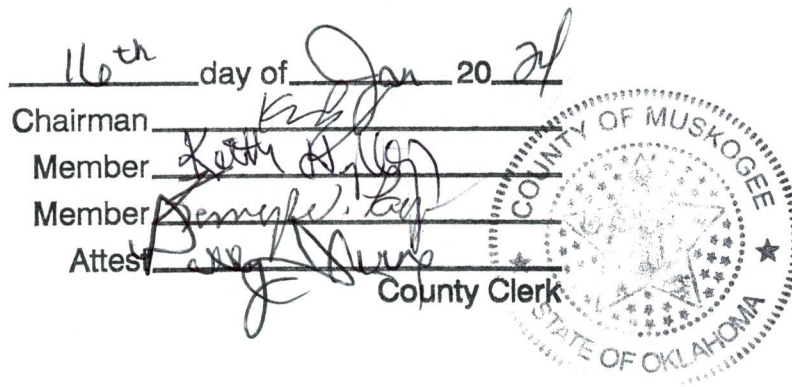 16th day of Jan 20 24
Chairman
Member Keith
Member
Attest
County Clerk
COUNTY OF MUSKOGEE
STATE OF OKLAHOMA